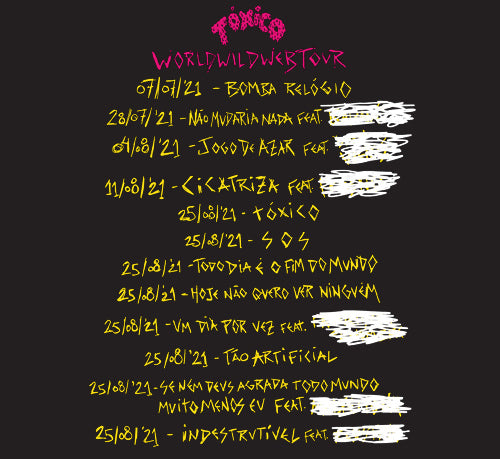 TÓXICO
WORLDWILDWEBTOUR
07/07/'21 - BOMBA RELÓGIO
28/07/'21 - NÃO MUDARIA NADA FEAT.
04/08/'21 - JOGO DE AZAR FEAT.
11/08/'21 - CICATRIZA FEAT.
25/08/'21 - TÓXICO
25/08/'21 - SOS
25/08/'21 - TODO DIA É O FIM DO MUNDO
25/08/'21 - HOJE NÃO QUERO VER NINGUÉM
25/08/'21 - UM DIA POR VEZ FEAT.
25/08/'21 - TÃO ARTIFICIAL
25/08/'21 - SE NEM DEUS AGRADA TODO MUNDO
MUITO MENOS EU FEAT.
25/08/'21 - INDESTRUTÍVEL FEAT.